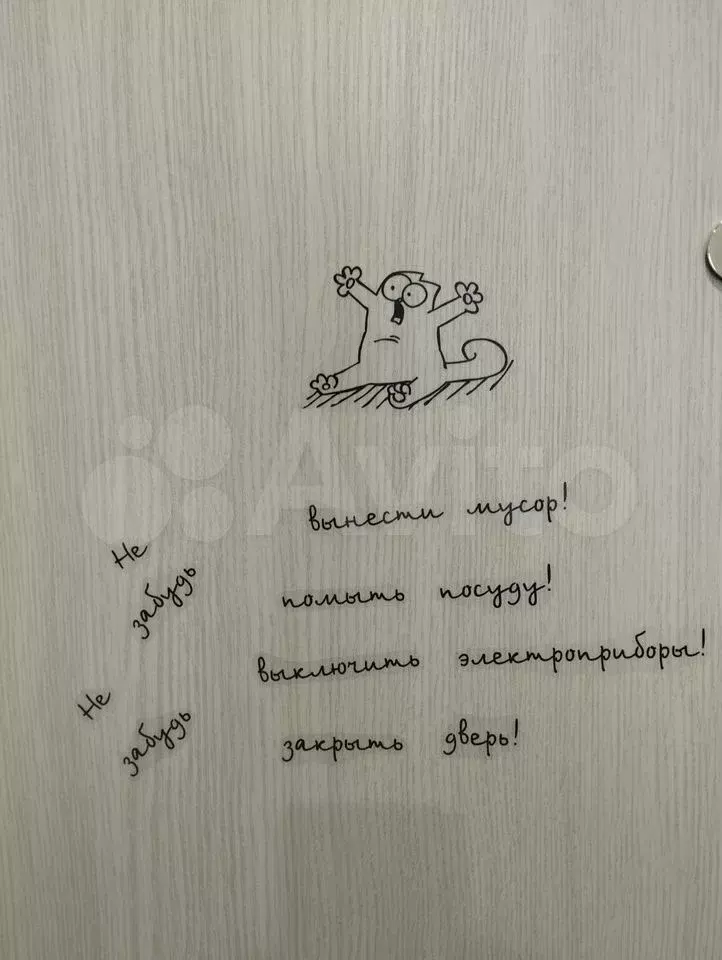 Avito
вынести мусор!
Не забудь
помыть посуду!
выключить электроприборы!
Не забудь
закрыть дверь!